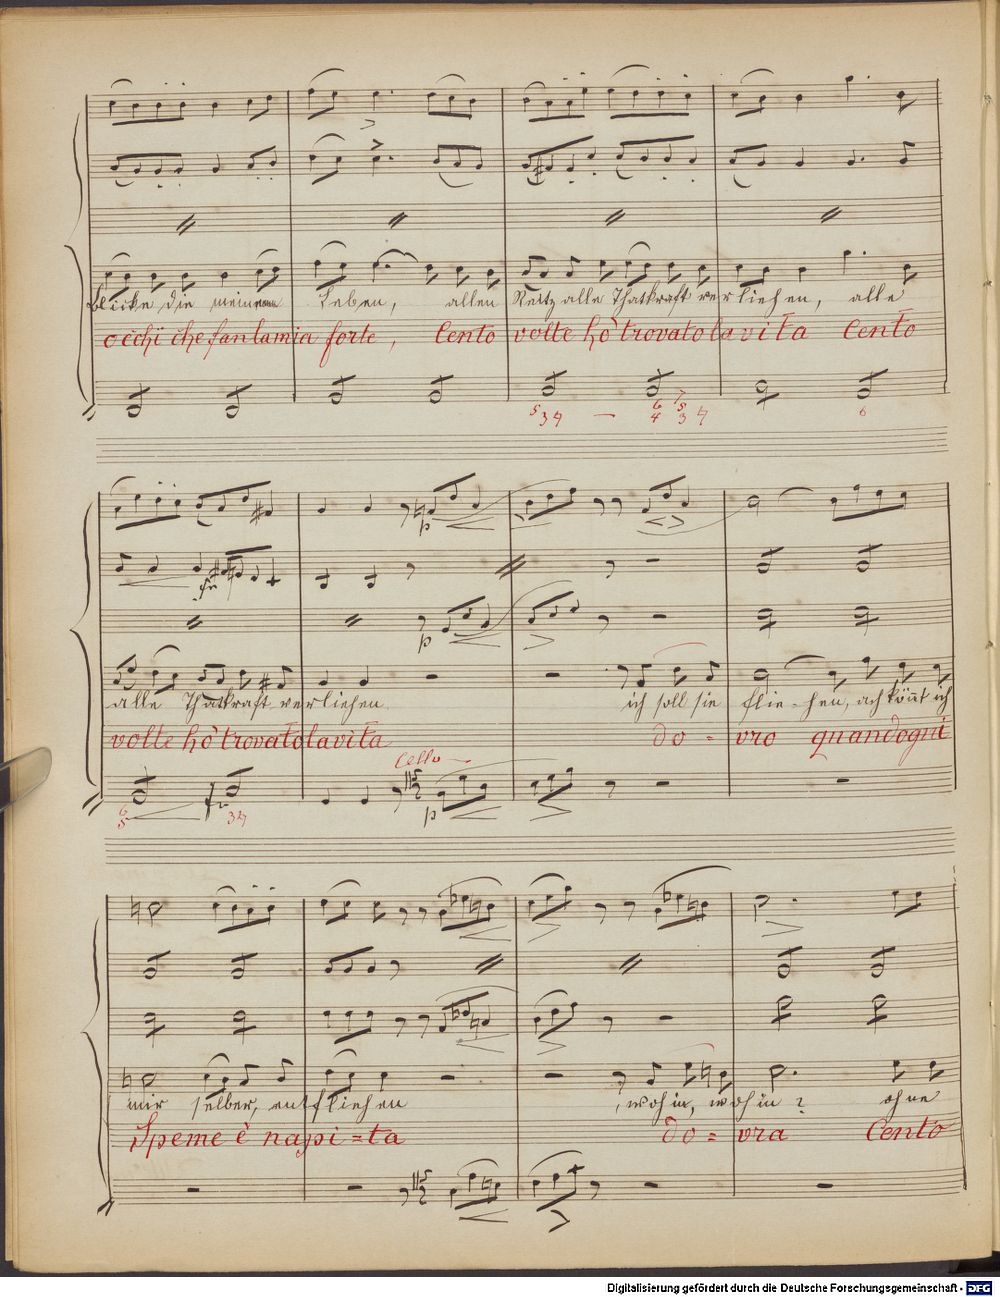 Blicke die meinem Leben, allen Reitz alle Thatkraft verliehen, alle
occhi che fan la mia forte, Cento volte ho trovato la vita Cento
5 3 4 — 6 4 7 5 3 4 6
alle Thatkraft verliehen ich soll sie flie-hen, ach könnt ich
volte ho trovato la vita do = vro quand ogni
Cello
p
6 5 34
mir selber, entfliehen, wohin, wohin? ohne
Speme è napi=ta do = vra Cento
Digitalisierung gefördert durch die Deutsche Forschungsgemeinschaft - DFG